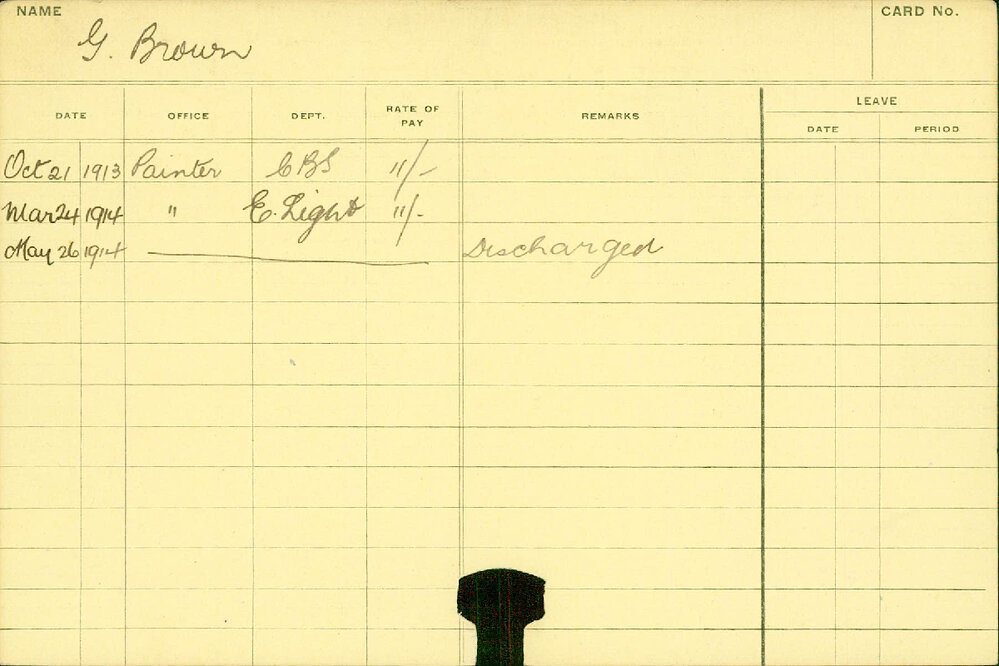 NAME
CARD No.
G. Brown
DATE OFFICE DEPT. RATE OF PAY REMARKS LEAVE
DATE PERIOD
Oct 21 1913 Painter CBS 11/-
Mar 24 1914 " E. Light 11/-
May 26 1914 Discharged